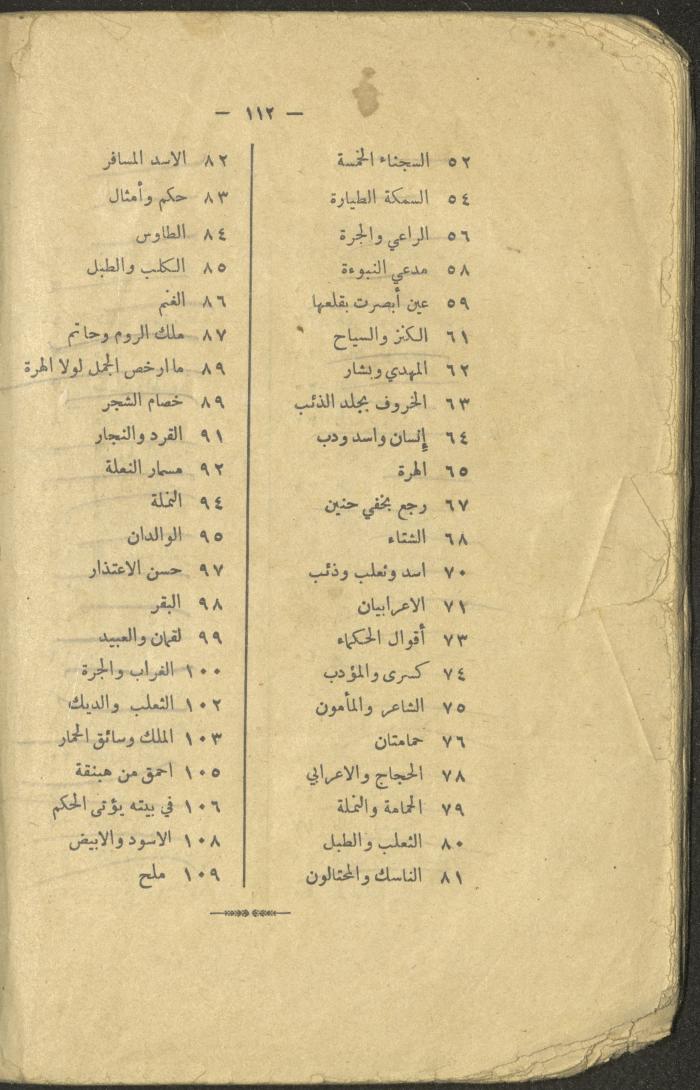 — ١١٢ —
٥٢ السجناء الخمسة
٥٤ السمكة الطيارة
٥٦ الراعي والجرة
٥٨ مدعي النبوءة
٥٩ عين أبصرت بقلعها
٦١ الكنز والسياح
٦٢ المهدي وبشار
٦٣ الخروف بجلد الذئب
٦٤ إنسان واسد ودب
٦٥ الهرة
٦٧ رجع بخفي حنين
٦٨ الشتاء
٧٠ اسد وثعلب وذئب
٧١ الاعرابيان
٧٣ أقوال الحكماء
٧٤ كسرى والمؤدب
٧٥ الشاعر والمأمون
٧٦ حمامتان
٧٨ الحجاج والاعرابي
٧٩ الحمامة والنملة
٨٠ الثعلب والطبل
٨١ الناسك والمحتالون
٨٢ الاسد المسافر
٨٣ حكم وأمثال
٨٤ الطاوس
٨٥ الكلب والطبل
٨٦ الغنم
٨٧ ملك الروم وحاتم
٨٩ ما ارخص الجمل لولا الهرة
٨٩ خصام الشجر
٩١ القرد والنجار
٩٢ مسمار النعلة
٩٤ النملة
٩٥ الوالدان
٩٧ حسن الاعتذار
٩٨ البقر
٩٩ لقمان والعبيد
١٠٠ الغراب والجرة
١٠٢ الثعلب والديك
١٠٣ الملك وسائق الحمار
١٠٥ احمق من هبنقة
١٠٦ في بيته يؤتى الحكم
١٠٨ الاسود والابيض
١٠٩ ملح